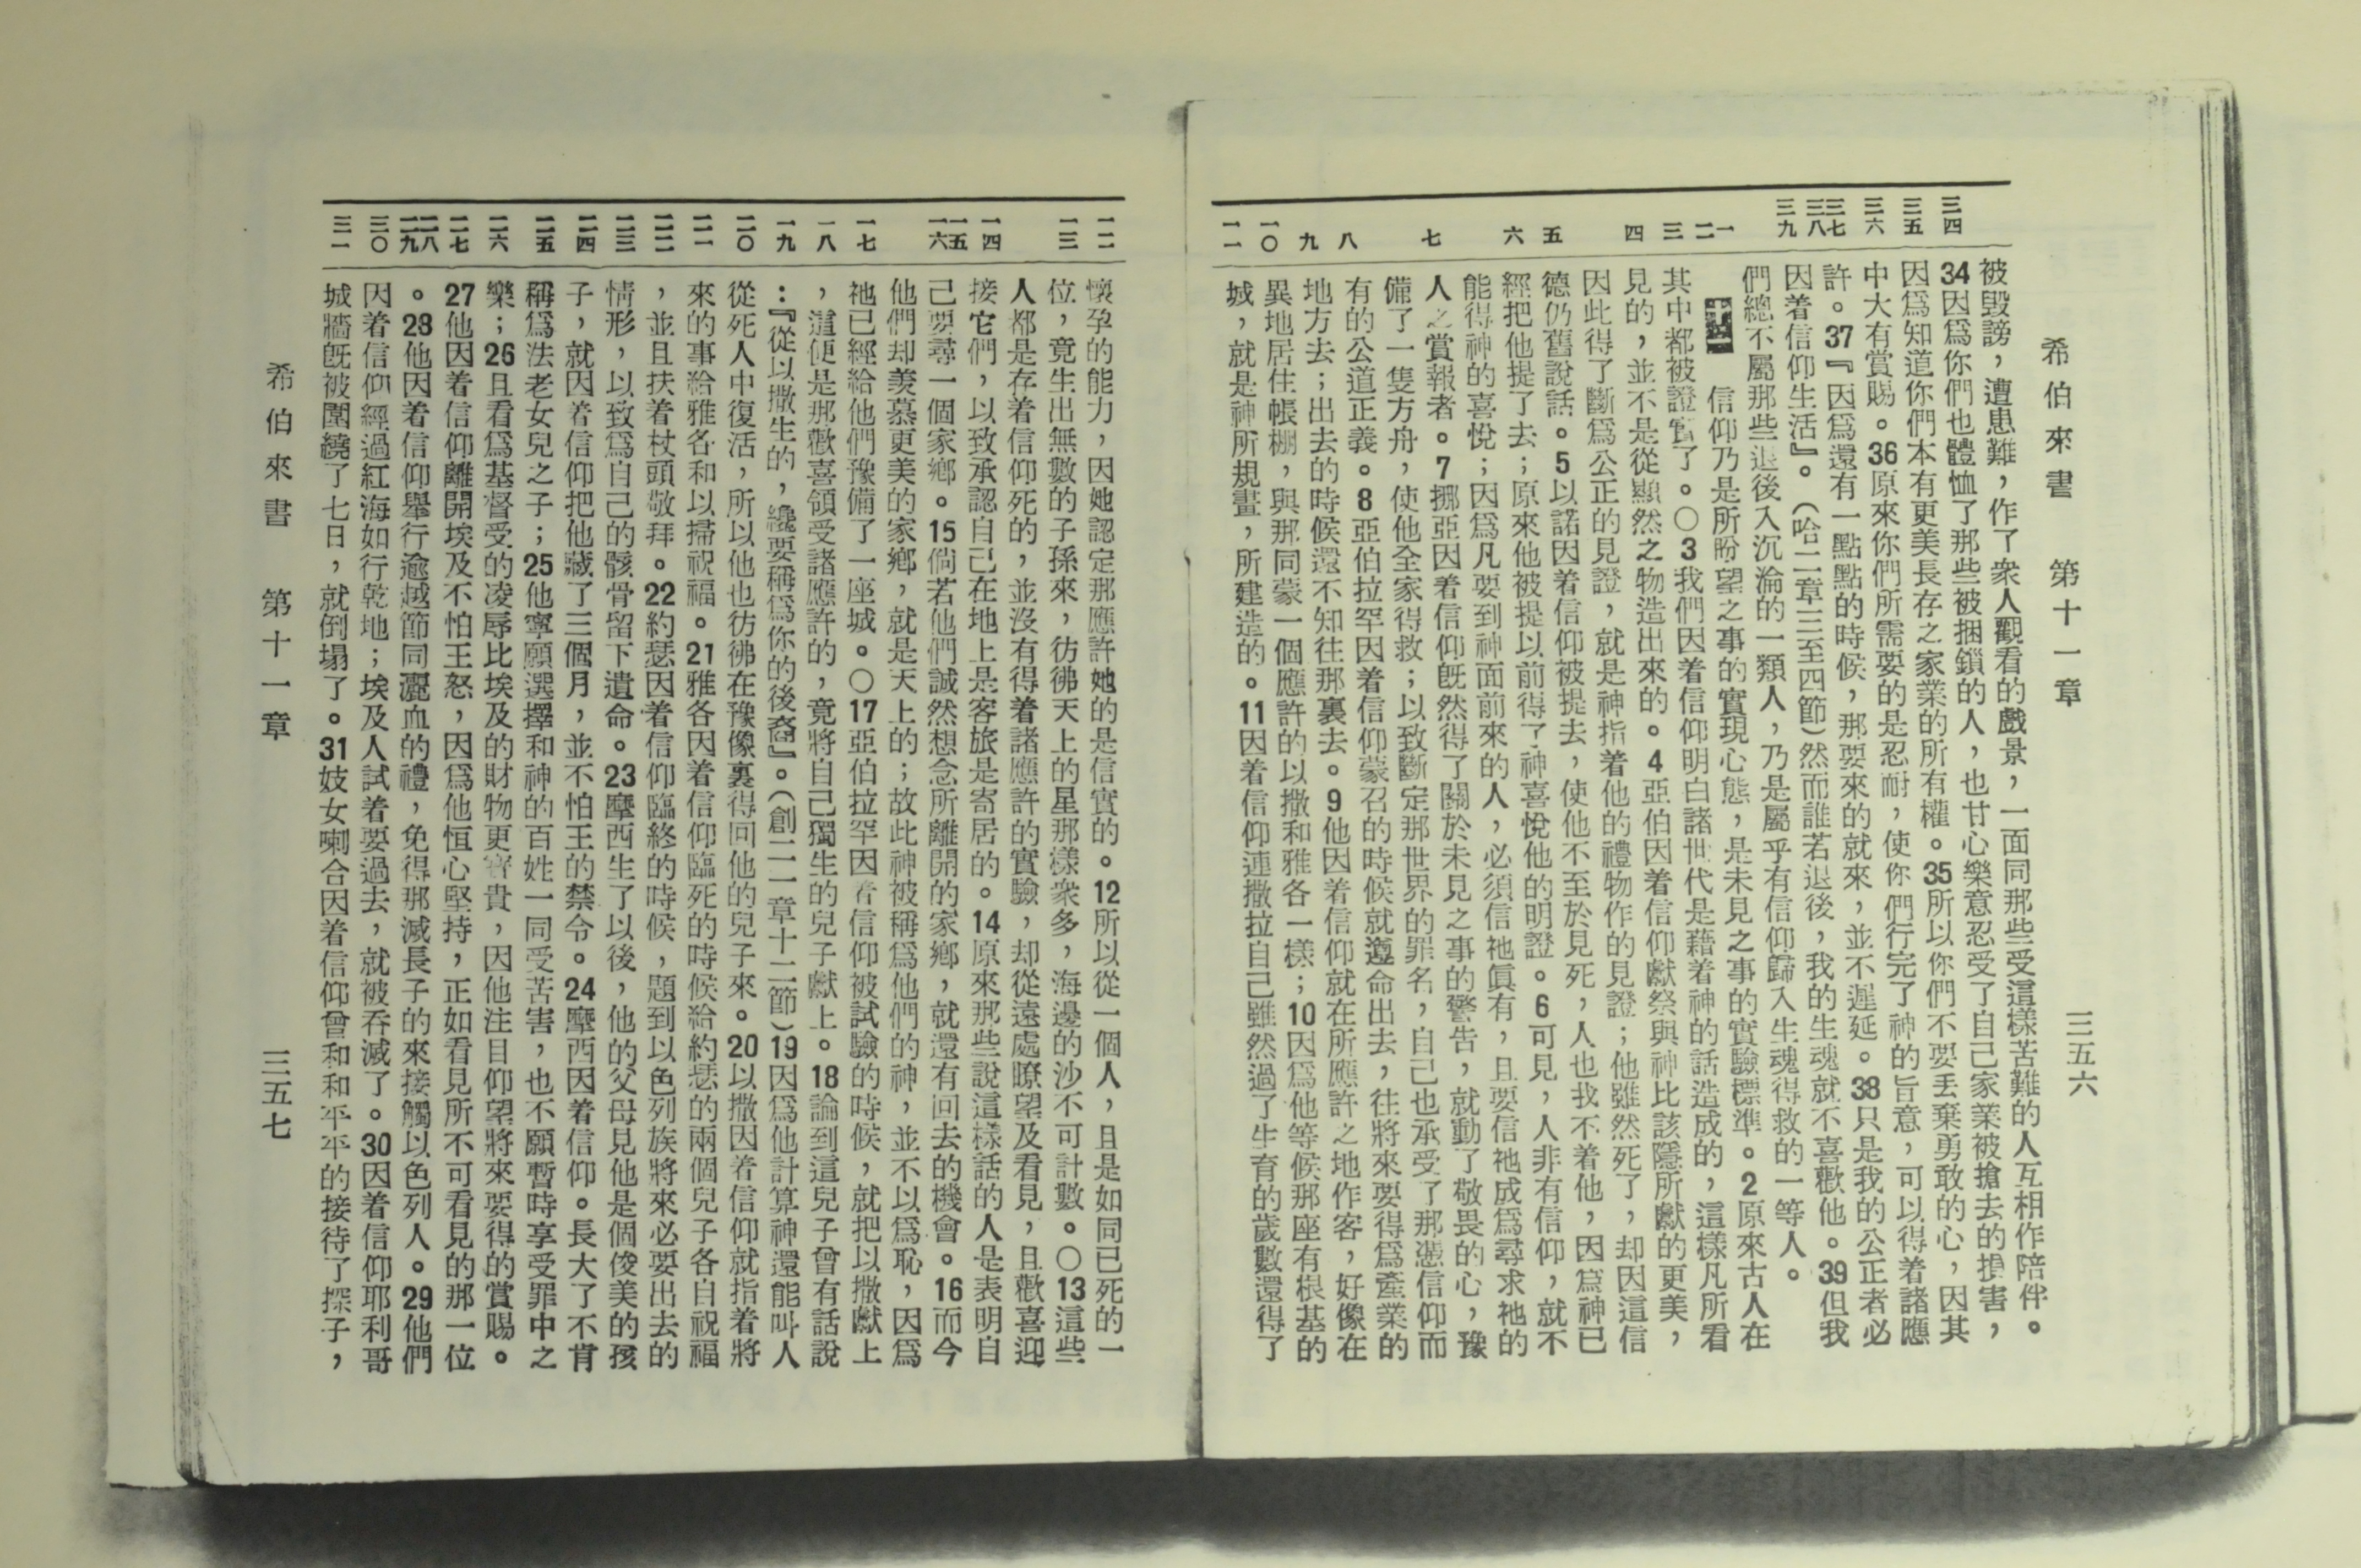 希伯來書　第十一章　三五六
三四
三五
三六
三七
三八
三九
一
二
三
四
五
六
七
八
九
一〇
一一
被毀謗，遭患難，作了衆人觀看的戲景，一面同那些受這樣苦難的人互相作陪伴。
34因爲你們也體恤了那些被捆鎖的人，也甘心樂意忍受了自己家業被搶去的損害，
因爲知道你們本有更美長存之家業的所有權。35所以你們不要丟棄勇敢的心，因其
中大有賞賜。36原來你們所需要的是忍耐，使你們行完了神的旨意，可以得着諸應
許。37『因爲還有一點點的時候，那要來的就來，並不遲延。38只是我的公正者必
因着信仰生活』。（哈二章三至四節）然而誰若退後，我的生魂就不喜歡他。39但我
們總不屬那些退後入沉淪的一類人，乃是屬乎有信仰歸入生魂得救的一等人。
十一　信仰乃是所盼望之事的實現心態，是未見之事的實驗標準。2原來古人在
其中都被證實了。〇3我們因着信仰明白諸世代是藉着神的話造成的，這樣凡所看
見的，並不是從顯然之物造出來的。4亞伯因着信仰獻祭與神比該隱所獻的更美，
因此得了斷爲公正的見證，就是神指着他的禮物作的見證；他雖然死了，却因這信
德仍舊說話。5以諾因着信仰被提去，使他不至於見死，人也我不着他，因爲神已
經把他提了去；原來他被提以前得了神喜悅他的明證。6可見，人非有信仰，就不
能得神的喜悅；因爲凡要到神面前來的人，必須信祂眞有，且要信祂成爲尋求祂的
人之賞報者。7挪亞因着信仰既然得了關於未見之事的警告，就動了敬畏的心，豫
備了一隻方舟，使他全家得救；以致斷定那世界的罪名，自己也承受了那憑信仰而
有的公道正義。8亞伯拉罕因着信仰蒙召的時候就遵命出去，往將來要得爲產業的
地方去；出去的時候還不知往那裏去。9他因着信仰就在所應許之地作客，好像在
異地居住帳棚，與那同蒙一個應許的以撒和雅各一樣；10因爲他等候那座有根基的
城，就是神所規畫，所建造的。11因着信仰連撒拉自己雖然過了生育的歲數還得了
一二
一三
一四
一五
一六
一七
一八
一九
二〇
二一
二二
二三
二四
二五
二六
二七
二八
二九
三〇
三一
懷孕的能力，因她認定那應許她的是信實的。12所以從一個人，且是如同已死的一
位，竟生出無數的子孫來，彷彿天上的星那樣衆多，海邊的沙不可計數。〇13這些
人都是存着信仰死的，並沒有得着諸應許的實驗，却從遠處瞭望及看見，且歡喜迎
接它們，以致承認自己在地上是客旅是寄居的。14原來那些說這樣話的人是表明自
己要尋一個家鄉。15倘若他們誠然想念所離開的家鄉，就還有回去的機會。16而今
他們却羨慕更美的家鄉，就是天上的；故此神被稱爲他們的神，並不以爲恥，因爲
祂已經給他們豫備了一座城。〇17亞伯拉罕因着信仰被試驗的時候，就把以撒獻上
，這便是那歡喜領受諸應許的，竟將自己獨生的兒子獻上。18論到這兒子曾有話說
：『從以撒生的，纔要稱爲你的後裔』。（創二一章十二節）19因爲他計算神還能叫人
從死人中復活，所以他也彷彿在豫像裏得回他的兒子來。20以撒因着信仰就指着將
來的事給雅各和以掃祝福。21雅各因着信仰臨死的時候給約瑟的兩個兒子各自祝福
，並且扶着杖頭敬拜。22約瑟因着信仰臨終的時候，題到以色列族將來必要出去的
情形，以致爲自己的骸骨留下遺命。23摩西生了以後，他的父母見他是個俊美的孩
子，就因着信仰把他藏了三個月，並不怕王的禁令。24摩西因着信仰。長大了不肯
稱爲法老女兒之子；25他寧願選擇和神的百姓一同受苦害，也不願暫時享受罪中之
樂；26且看爲基督受的凌辱比埃及的財物更寶貴，因他注目仰望將來要得的賞賜。
27他因着信仰離開埃及不怕王怒，因爲他恒心堅持，正如看見所不可看見的那一位
。28他因着信仰舉行逾越節同灑血的禮，免得那滅長子的來接觸以色列人。29他們
因着信仰經過紅海如行乾地；埃及人試着要過去，就被吞滅了。30因着信仰耶利哥
城牆既被圍繞了七日，就倒塌了。31妓女喇合因着信仰曾和和平平的接待了探子，
希伯來書　第十一章　三五七